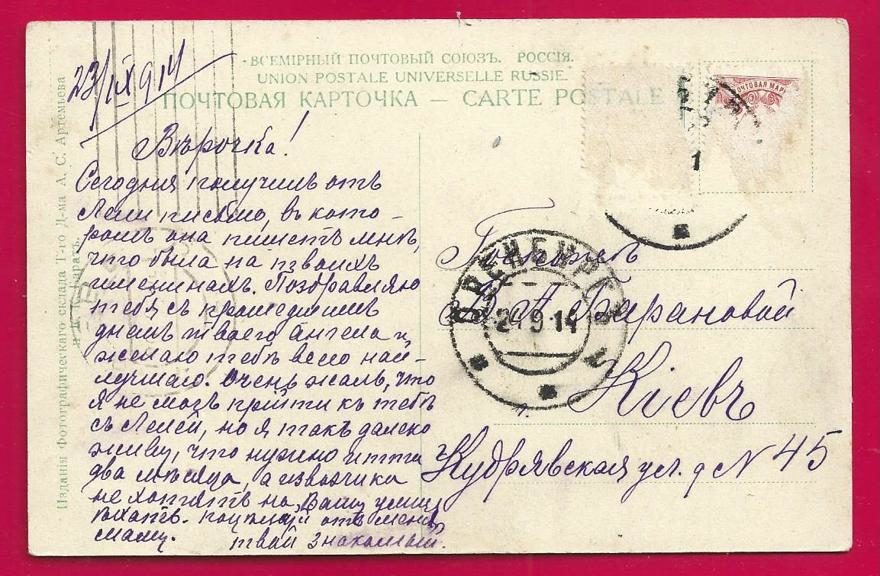 ВСЕМІРНЫЙ ПОЧТОВЫЙ СОЮЗЪ. РОССІЯ.
UNION POSTALE UNIVERSELLE RUSSIE.
ПОЧТОВАЯ КАРТОЧКА — CARTE POSTALE
23/IX 914
Вѣрочка!
Сегодня получилъ отъ
Лели письмо, въ кото-
ромъ она пишетъ мнѣ,
что была на твоихъ
именинахъ. Поздравляю
тебя съ прошедшимъ
днемъ твоего Ангела и
желаю тебѣ всего най-
лучшаго. Очень жаль, что
я не могъ прійти къ тебѣ
съ Лелей, но я такъ далеко
живу, что нужно итти
два мѣсяца, а извозчики
не хотятъ на Вашу улицу
ѣхать. Поцѣлуй отъ меня
маму. твой знакомый.
В. А. Барановой
Кіевъ
Кудрявская ул. д N 45
ОРЕНБУРГЪ
24 9 14
1
ПОЧТОВАЯ МАР
Изданія Фотографическаго склада Т-го Д-ма А. С. Артемьева